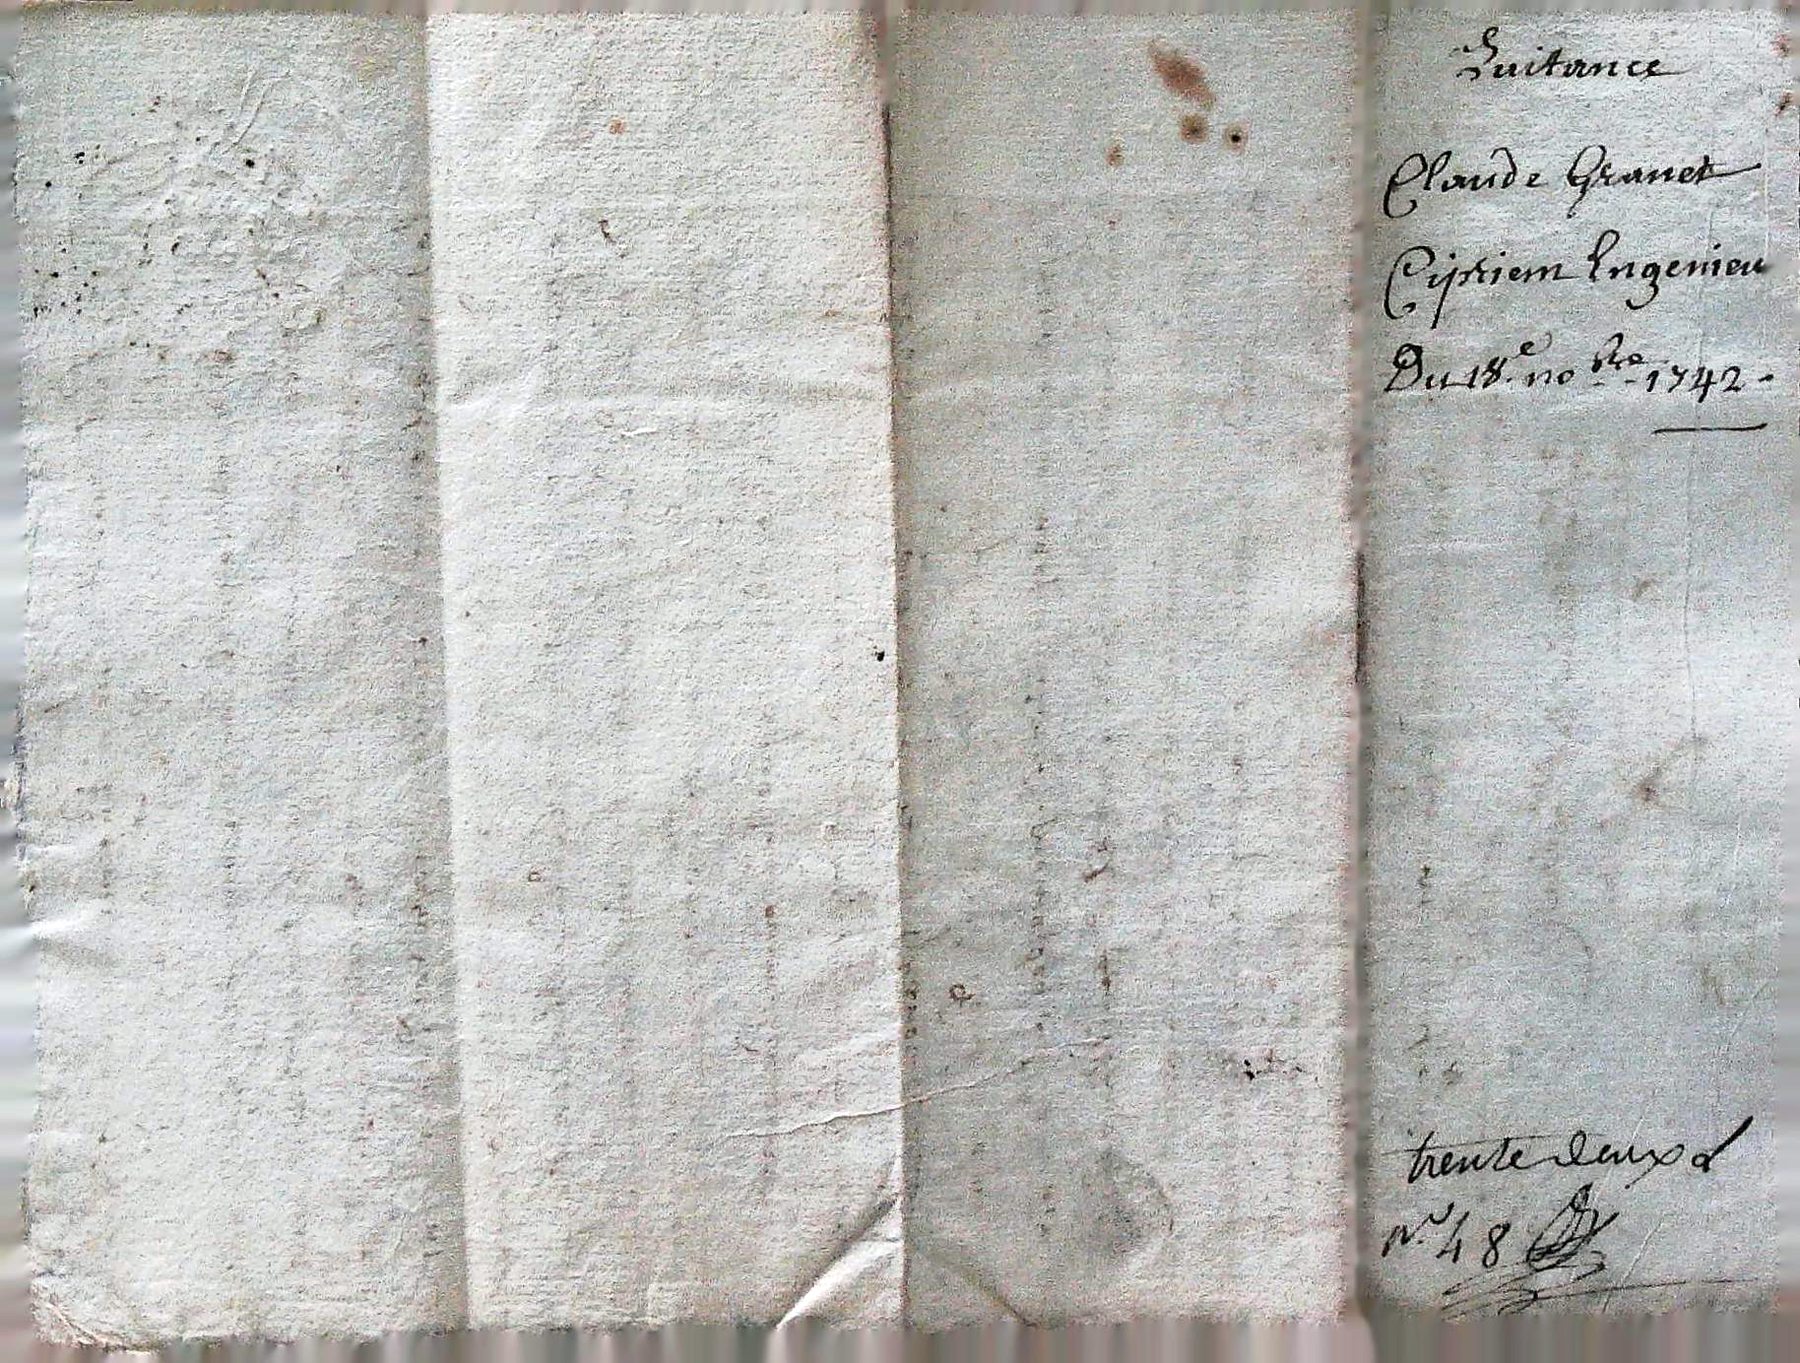 Quitance
Claude Granet
Ciprien Ingenieu
Du 18.e no bre 1742 -
trente deux
N.º 48